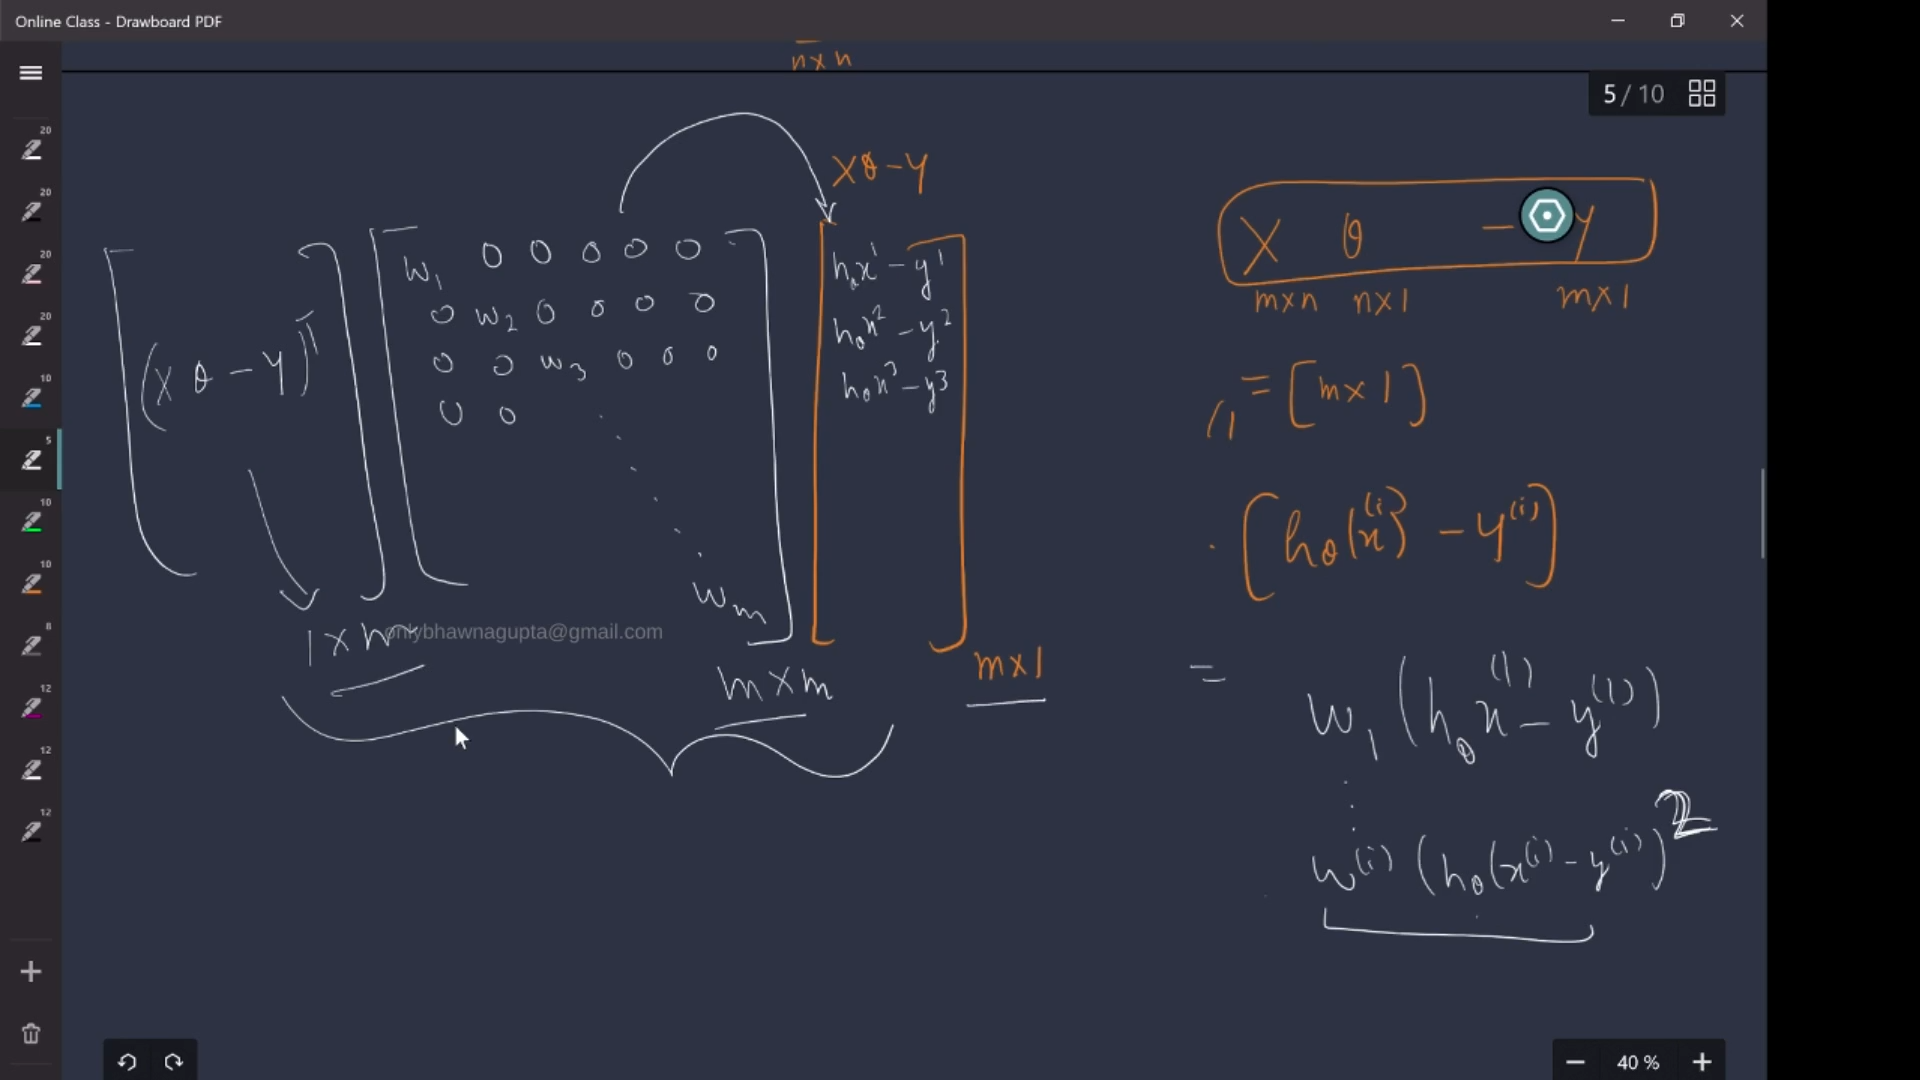 Online Class - Drawboard PDF
n x n
5 / 10
20
20
20
20
10
5
10
10
8
12
12
12
Xθ - y
(Xθ - Y)^T
w_1 0 0 0 0 0
0 w_2 0 0 0 0
0 0 w_3 0 0 0
0 0
w_m
h_θx^1 - y^1
h_θx^2 - y^2
h_θx^3 - y^3
1 x m
onlybhawnagupta@gmail.com
m x m
m x 1
X θ - y
m x n n x 1 m x 1
= [m x 1]
[h_θ(x^(i)) - y^(i)]
=
w_1 (h_θ x^(1) - y^(1))
w^(i) (h_θ(x^(i) - y^(i))^2
40 %